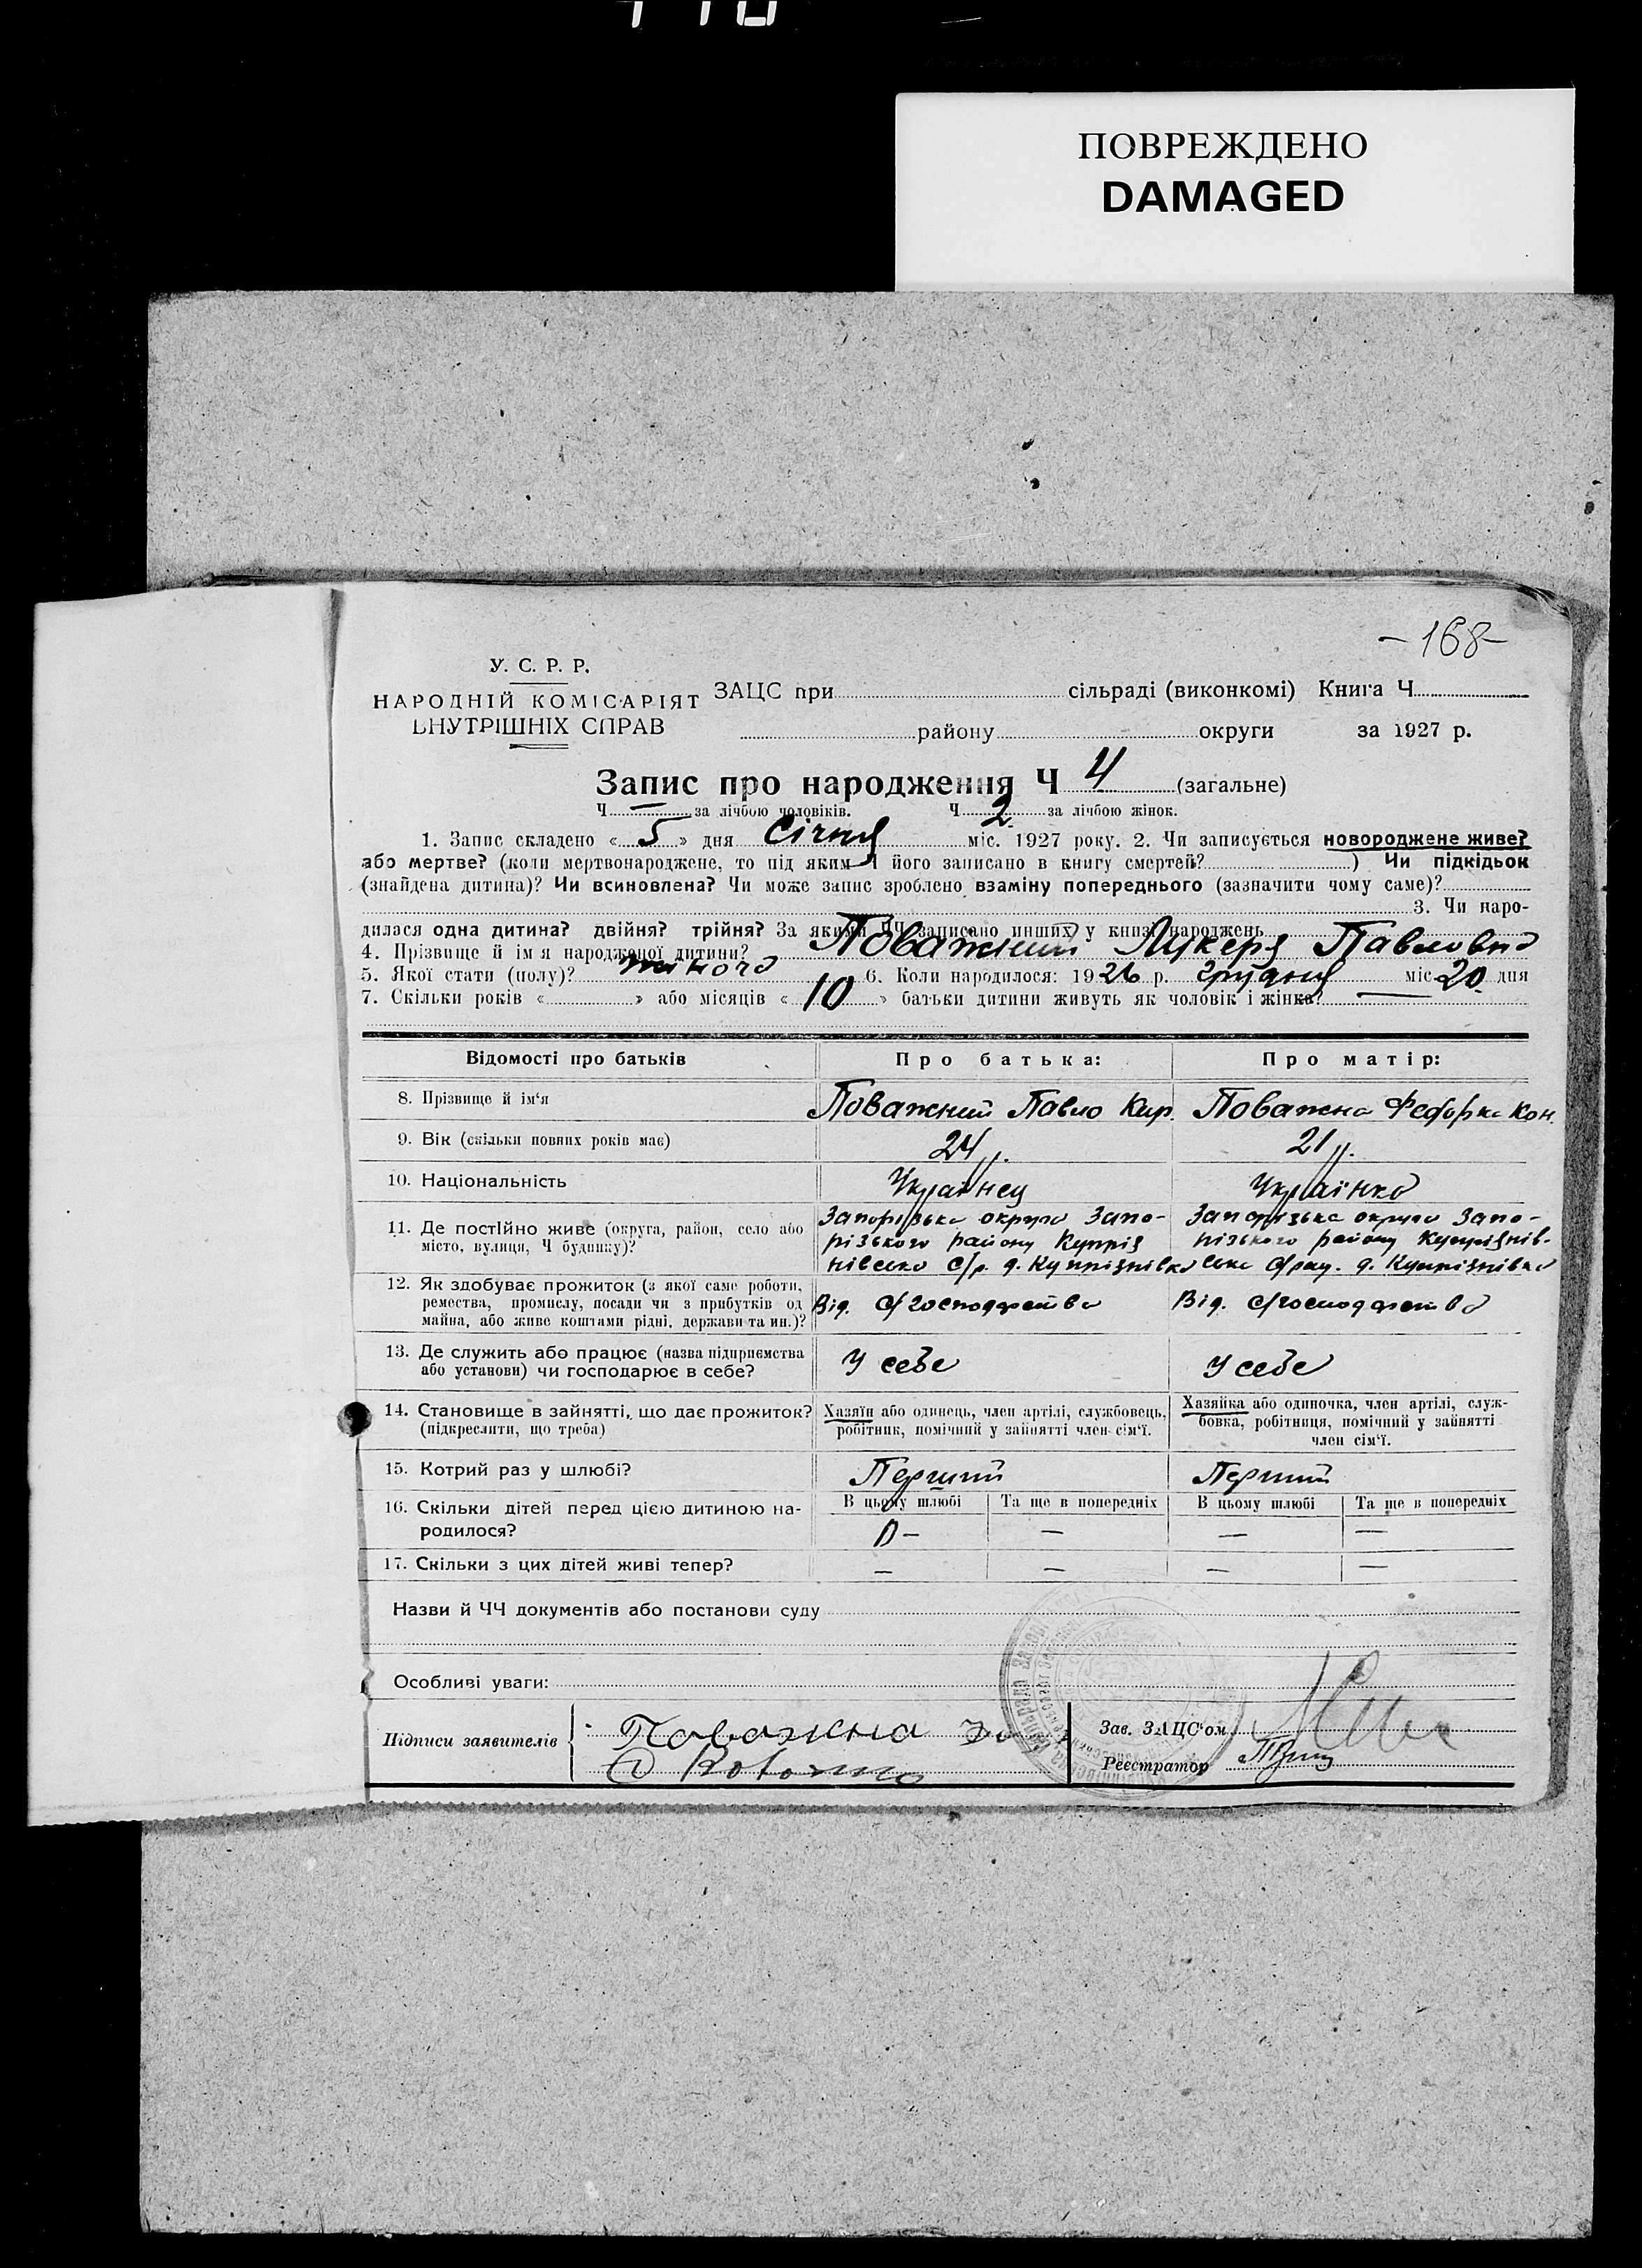 ПОВРЕЖДЕНО
DAMAGED
- 168 -
У. С. Р. Р.
НАРОДНІЙ КОМІСАРІЯТ
ВНУТРІШНІХ СПРАВ
ЗАЦС при сільраді (виконкомі) Книга Ч
району округи за 1927 р.
Запис про народження Ч 4 (загальне)
Ч — за лічбою чоловіків. Ч 2 за лічбою жінок.
1. Запис складено « 5 » дня Січня міс. 1927 року. 2. Чи записується новороджене живе?
або мертве? (коли мертвонароджене, то під яким Ч його записано в книгу смертей? ) Чи підкідьок
(знайдена дитина)? Чи всиновлена? Чи може запис зроблено взаміну попереднього (зазначити чому саме)?
3. Чи наро-
дилася одна дитина? двійня? трійня? За якими ЧЧ записано инших у книзі народжень
4. Прізвище й ім'я народженої дитини? Поважний Лукеря Павловна
5. Якої стати (полу)? жіноча 6. Коли народилося: 1926 р. грудня міс 20 дня
7. Скільки років « » або місяців « 10 » батьки дитини живуть як чоловік і жінка? —
Відомості про батьків Про батька: Про матір:
8. Прізвище й ім'я Поважний Павло Кир. Поважна Федорка Кон.
9. Вік (скільки повних років має) 24 р. 21 р.
10. Національність Українец Українка
11. Де постійно живе (округа, район, село або місто, вулиця, Ч будинку)?
Запорізька округа Запо-
різького району Купріз
нівсько с/р. д. Купрізнівка
Запорізька округа Запо-
різького району Купрізнів-
ська с/рад. д. Купрізнівка
12. Як здобуває прожиток (з якої саме роботи,
ремества, промислу, посади чи з прибутків од
майна, або живе коштами рідні, держави та ин.)?
Від. с/господарства Від. с/господарства
13. Де служить або працює (назва підприємства
або установи) чи господарює в себе?
У себе У себе
14. Становище в зайнятті, що дає прожиток?
(підкреслити, що треба)
Хазяїн або одинець, член артілі, службовець,
робітник, помічний у зайнятті член сім'ї.
Хазяйка або одиночка, член артілі, служ-
бовка, робітниця, помічний у зайнятті
член сім'ї.
15. Котрий раз у шлюбі? Перший Перший
16. Скільки дітей перед цією дитиною на-
родилося?
В цьому шлюбі Та ще в попередніх В цьому шлюбі Та ще в попередніх
0 — — — —
17. Скільки з цих дітей живі тепер? — — — —
Назви й ЧЧ документів або постанови суду
Особливі уваги:
Підписи заявителів Поважна
Зав. ЗАЦС'ом
Реєстратор